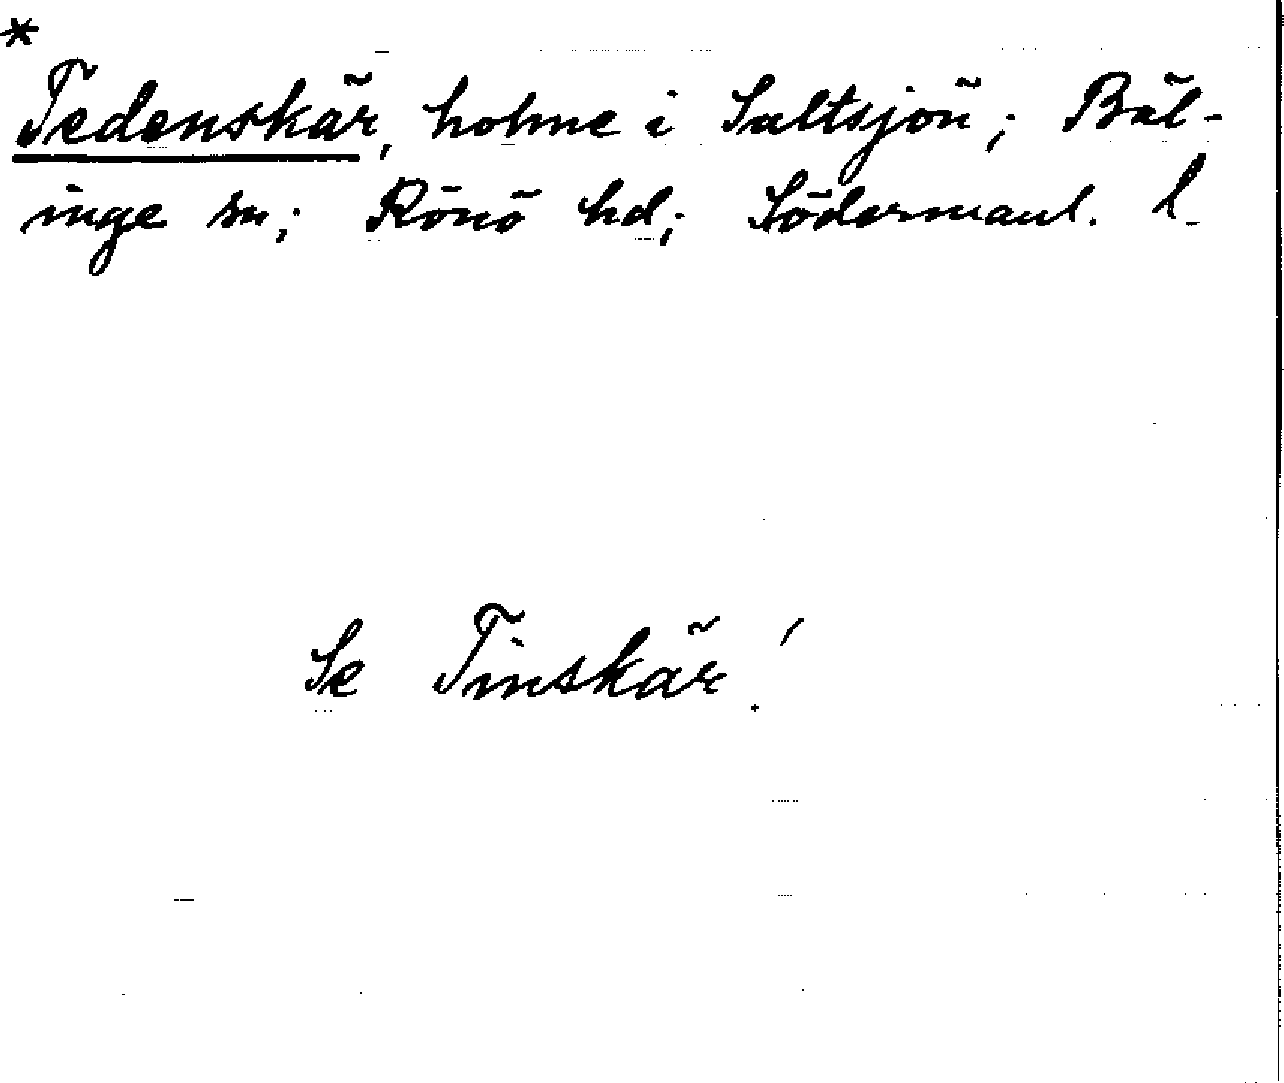 *
Tedenskär, holme i Saltsjön; Bäl-
inge sn; Rönö hd; Södermanl. l.
Se Tinskär!